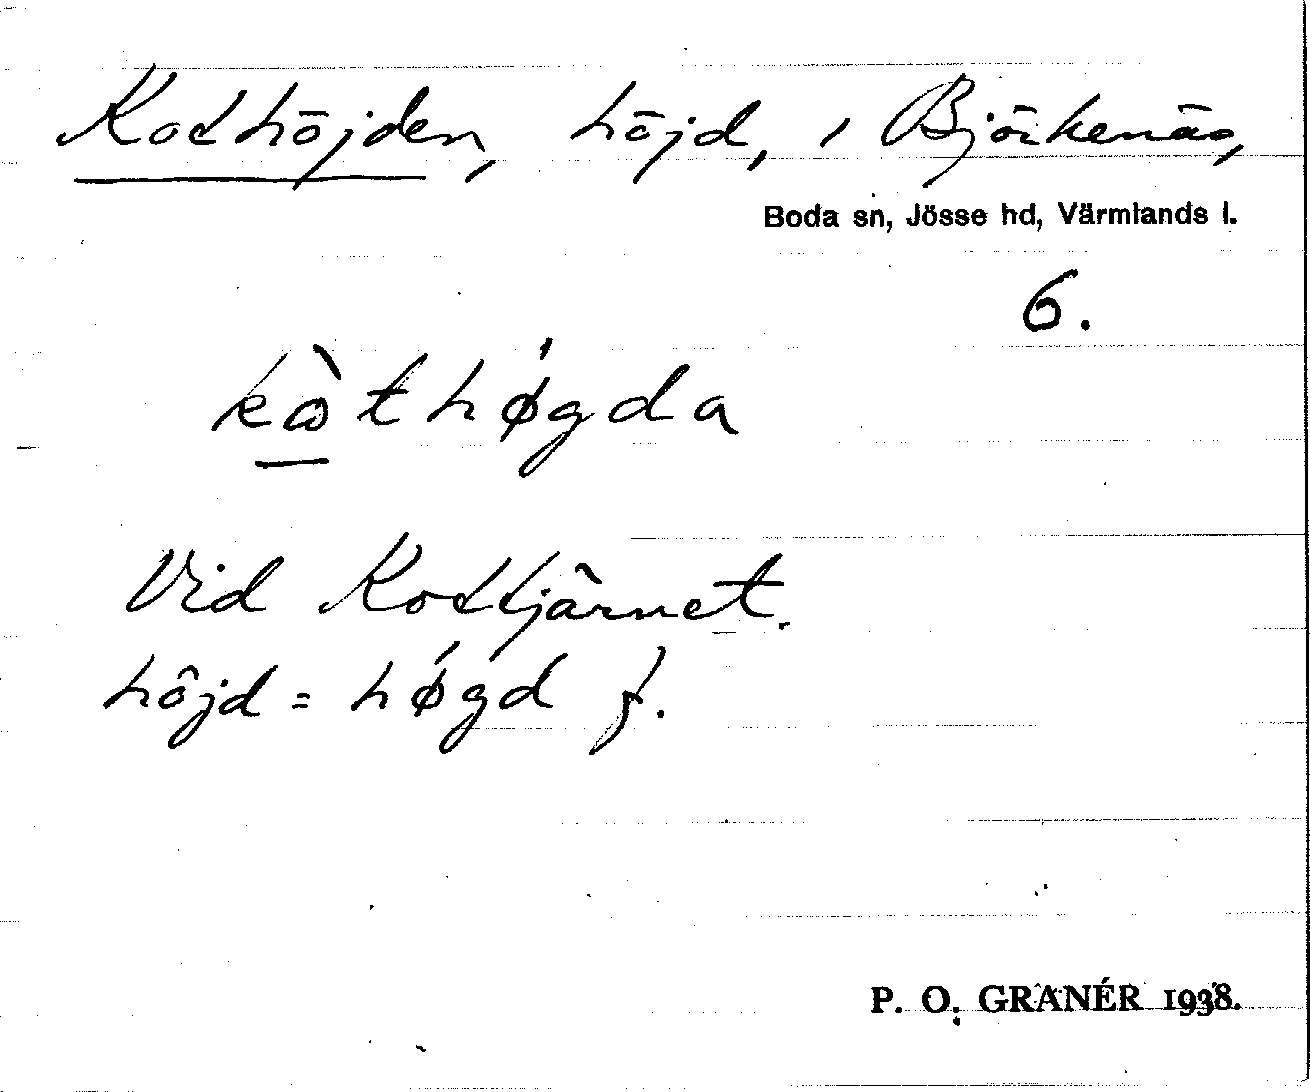 Kothöjden, höjd, i Björkenäs,
Boda sn, Jösse hd, Värmlands l.
6.
kòthǿgda
Vid Kottjärnet.
höjd = høgd f.
P. O. GRANÉR 1938.